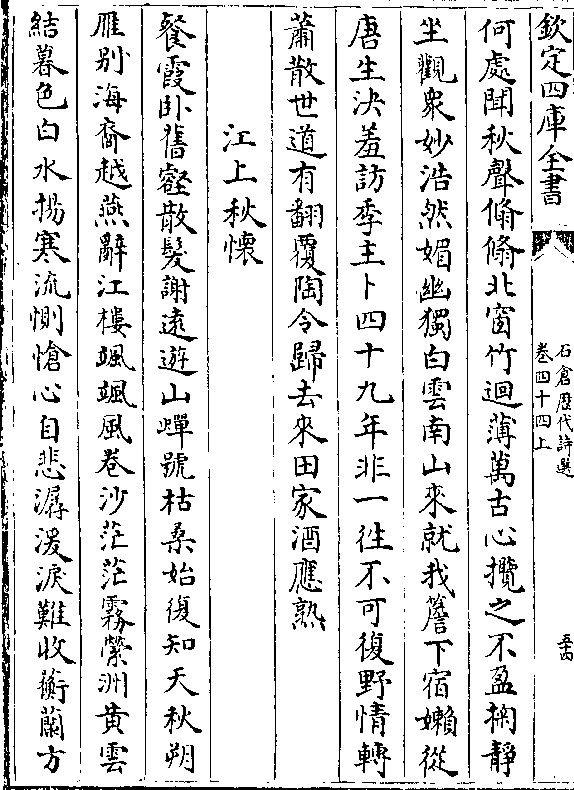 欽定四庫全書
石倉歷代詩選
卷四十四上
五十四
何處聞秋聲翛翛北窗竹迴薄萬古心攬之不盈掬靜
坐觀衆妙浩然媚幽獨白雲南山來就我簷下宿嬾從
唐生決羞訪季主卜四十九年非一往不可復野情轉
蕭散世道有翻覆陶令歸去來田家酒應熟
江上秋懷
餐霞卧舊壑散髮謝遠遊山蟬號枯桑始復知天秋朔
雁别海裔越燕辭江樓颯颯風卷沙茫茫霧縈洲黄雲
結暮色白水揚寒流惻愴心自悲潺湲淚難收蘅蘭方